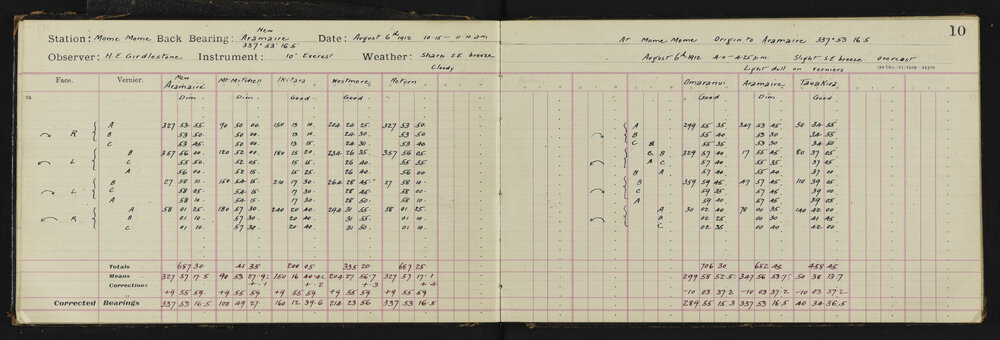 New
Station: Mome Mome Back Bearing: Aramaire Date: August 6th 1912 10·15 – 11·10 am
337° 53' 16·5
Observer: H.E Girdlestone Instrument: 10" Everest Weather: Sharp S.E breeze
Cloudy
Face. Vernier. New Aramaire Mt Mitchell Ihitara Westmere Return
Dim. Dim. Good Good
R A 327 53 55 90 50 00 150 13 10 204 24 25 327 53 50
B 53 50 50 00 13 10 24 30 53 50
C 53 45 50 00 13 15 24 30 53 40
L B 357 56 00 120 52 00 180 15 20 234 26 35 357 56 05
C 55 50 52 05 15 15 26 40 55 55
A 56 00 52 15 15 25 26 40 56 00
L B 27 58 10 150 54 15 210 17 30 264 28 45 27 58 10
C 58 05 54 15 17 30 28 45 58 00
A 58 10 54 15 17 30 28 50 58 10
R A 58 01 25 180 57 30 240 20 40 294 31 55 58 01 25
B 01 10 57 30 20 40 31 55 01 10
C 01 10 57 30 20 40 31 50 01 10
Totals 687 30 41 35 200 05 335 20 687 25
Means 327 57 17·5 90 53 27·9 150 16 40·4 204 27 56·7 327 57 17·1
Corrections +·1 +·2 +·3 +·4
+9 55 59 +9 55 59 +9 55 59 +9 55 59 +9 55 59
Corrected Bearings 337 53 16·5 100 49 27 160 12 39·6 214 23 56 337 53 16·5
10
At Mome Mome Origin to Aramaire 337° 53' 16·5
August 6th 1912 4·0 – 4·25 pm Slight S.E breeze overcast
Light dull on verniers
Omaranui Aramaire Tauakira
Good Dim Good
A 299 55 35 347 53 45 50 34 55
B 55 40 53 30 34 55
C 55 35 53 30 34 50
B 329 57 40 17 55 45 80 37 05
C 57 40 55 35 37 05
A 57 40 55 40 37 00
B 359 59 45 47 57 45 110 39 05
C 59 35 57 45 39 05
A 59 40 57 45 39 05
A 30 02 40 78 00 35 140 42 00
B 02 25 00 30 41 45
C 02 35 00 40 42 00
706 30 682 45 458 45
299 58 52·5 347 56 53·7 50 38 13·7
–10 03 37·2 –10 03 37·2 –10 03 37·2
289 55 15·3 337 53 16·5 40 34 36·5